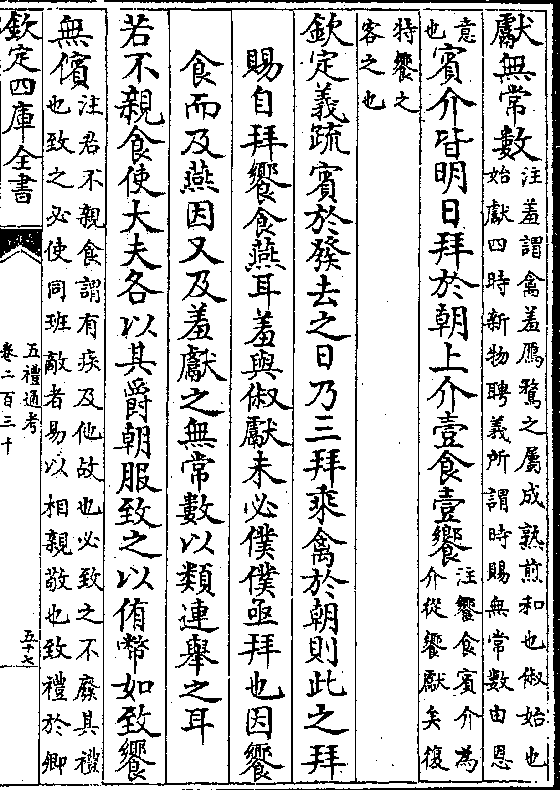 獻無常數註羞謂禽羞鴈鶩之屬成熟煎和也俶始也
始獻四時新物聘義所謂時賜無常數由恩
意
也賓介皆明日拜於朝上介壹食壹饗注饗食賓介為
介從饗獻矣復
特饗之
客之也
欽定義疏賓於發去之日乃三拜乘禽於朝則此之拜
賜自拜饗食燕耳羞與俶獻未必僕僕亟拜也因饗
食而及燕因又及羞獻之無常數以類連舉之耳
若不親食使大夫各以其爵朝服致之以侑幣如致饗
無儐注君不親食謂有疾及他故也必致之不廢其禮
也致之必使同班敵者易以相親敬也致禮於卿
欽定四庫全書
五禮通考
卷二百三十
五十七